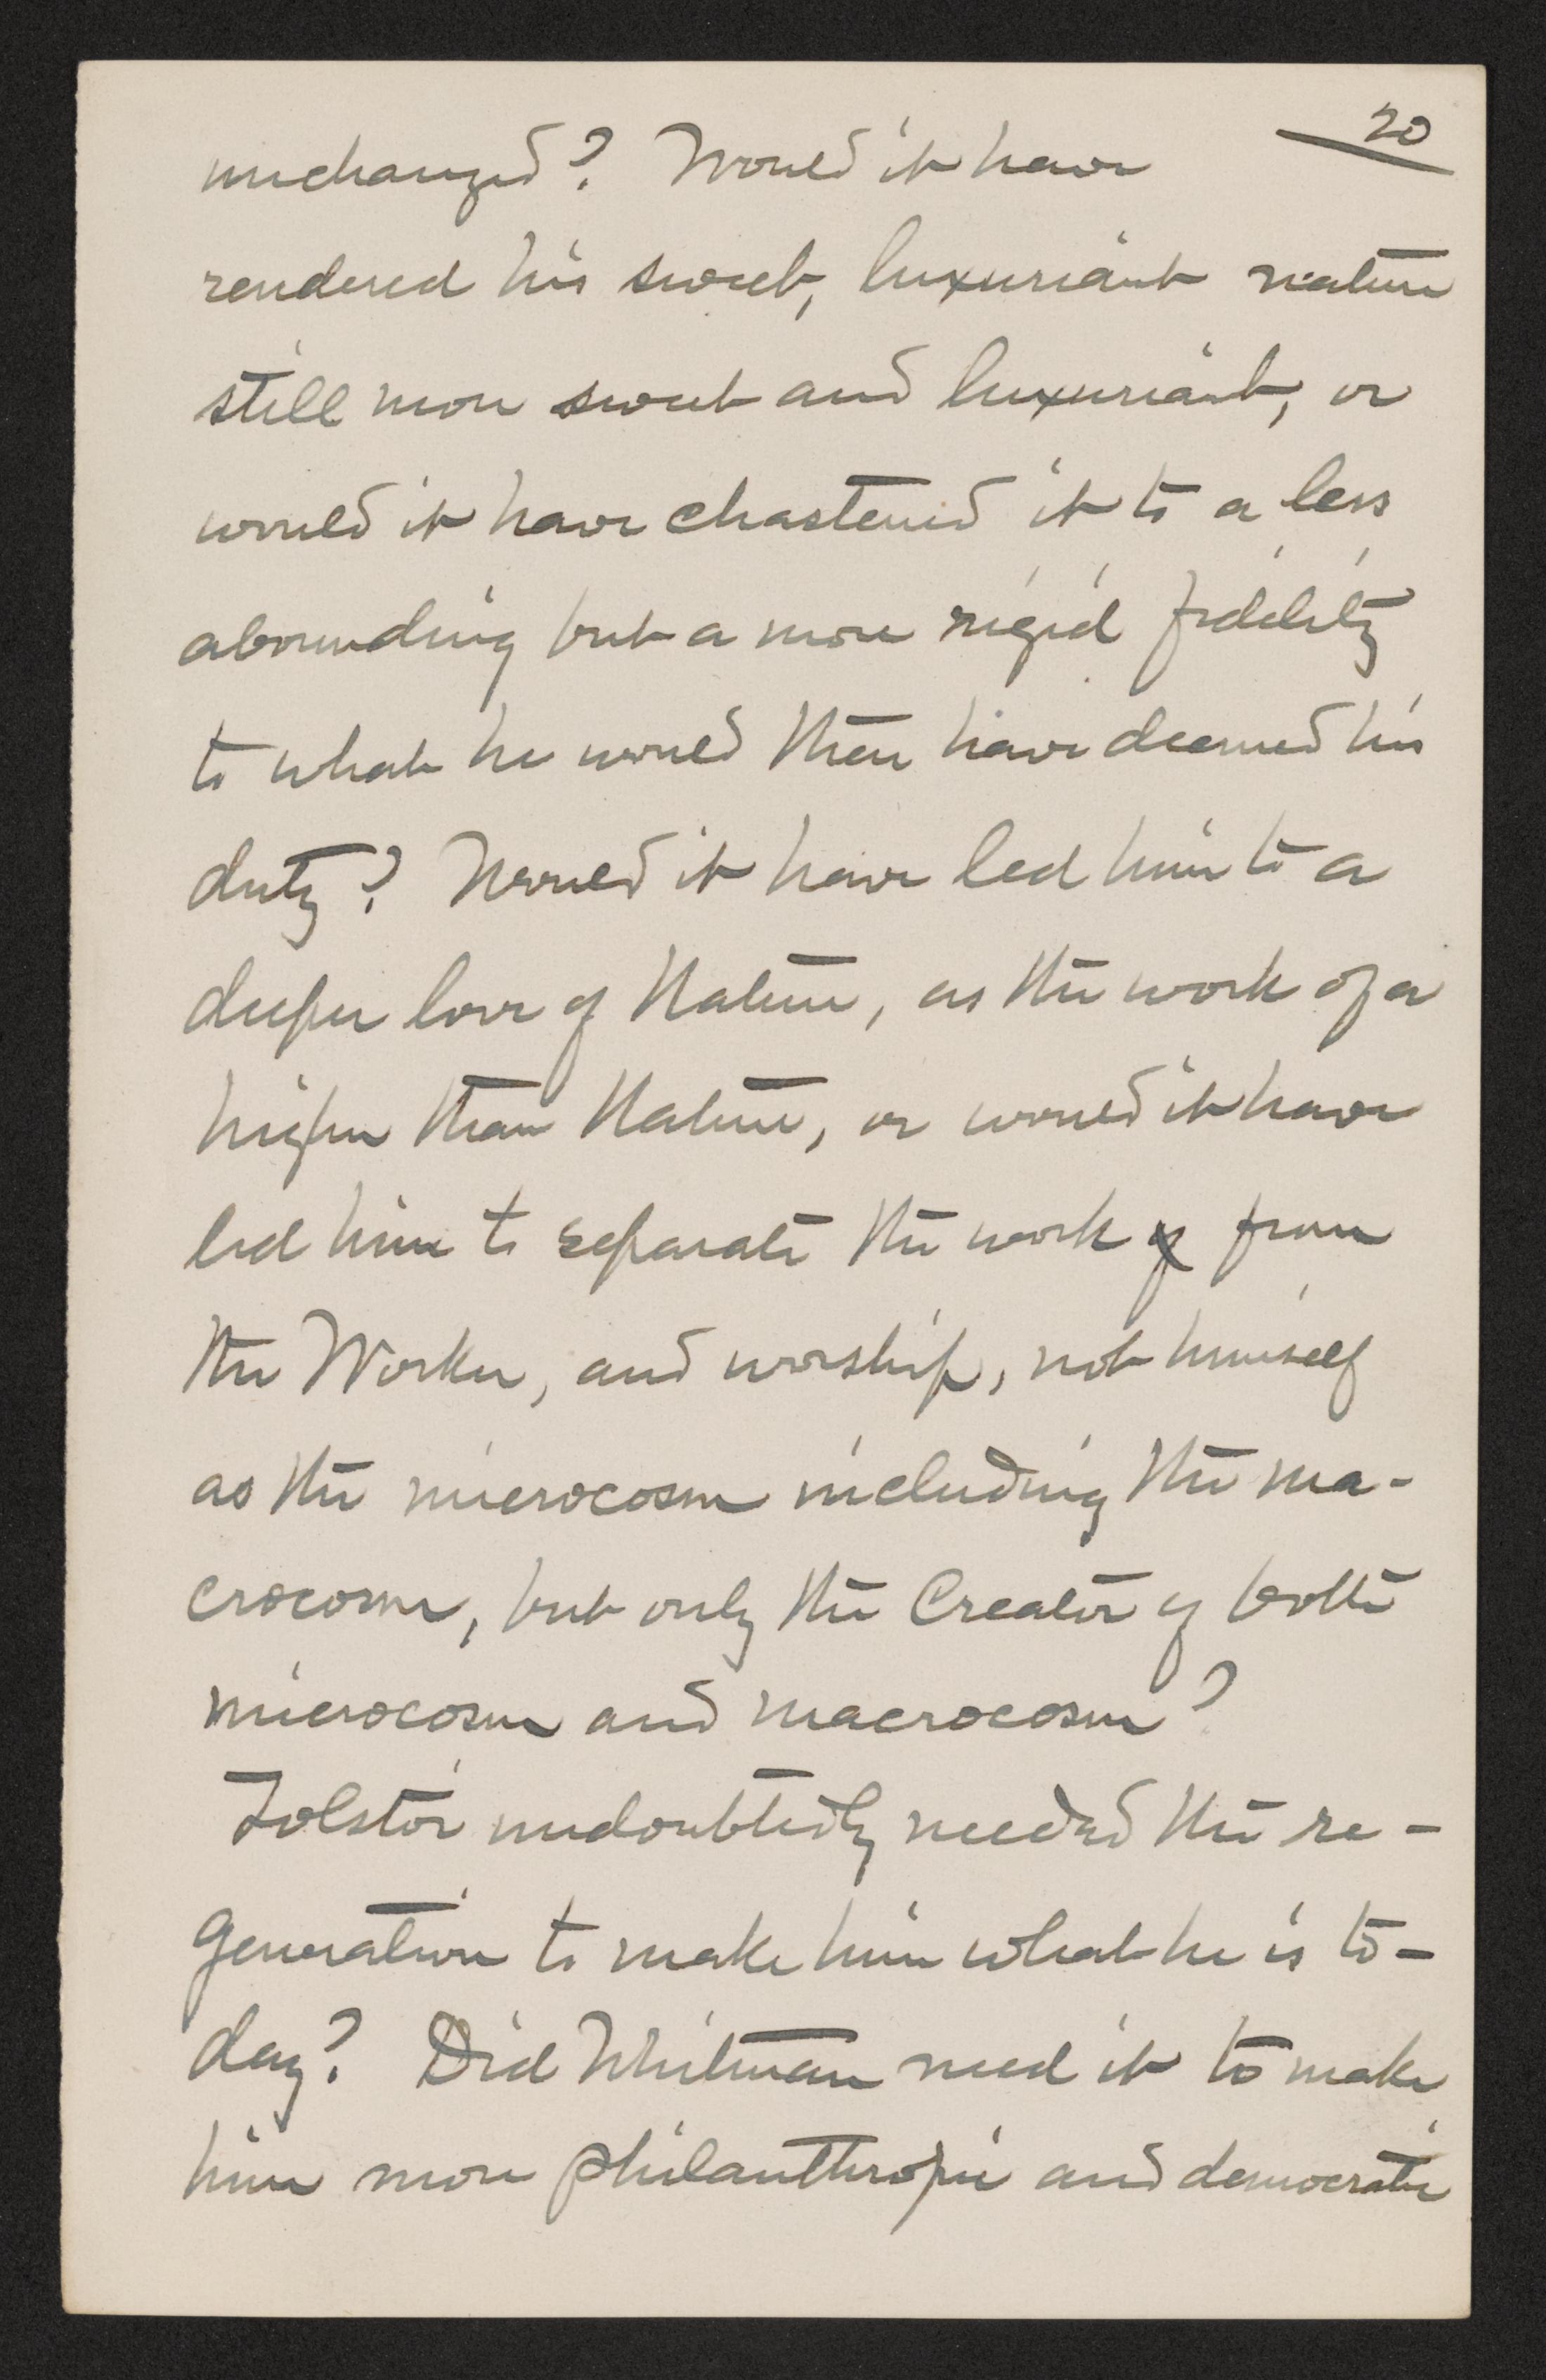 20
unchanged? Would it have
rendered his sweet, luxuriant nature
still more sweet and luxuriant, or
would it have chastened it to a less
abounding but a more rigid fidelity
to what he would then have deemed his
duty? Would it have led him to a
deeper love of Nature, as the work of a
higher than Nature, or would it have
led him to separate the work of from
the Worker, and worship, not himself
as the microcosm including the ma-
crocosm, but only the Creator of both
microcosm and macrocosm?
Tolstoi undoubtedly needed the re-
generation to make him what he is to-
day? Did Whitman need it to make
him more philanthropic and democratic